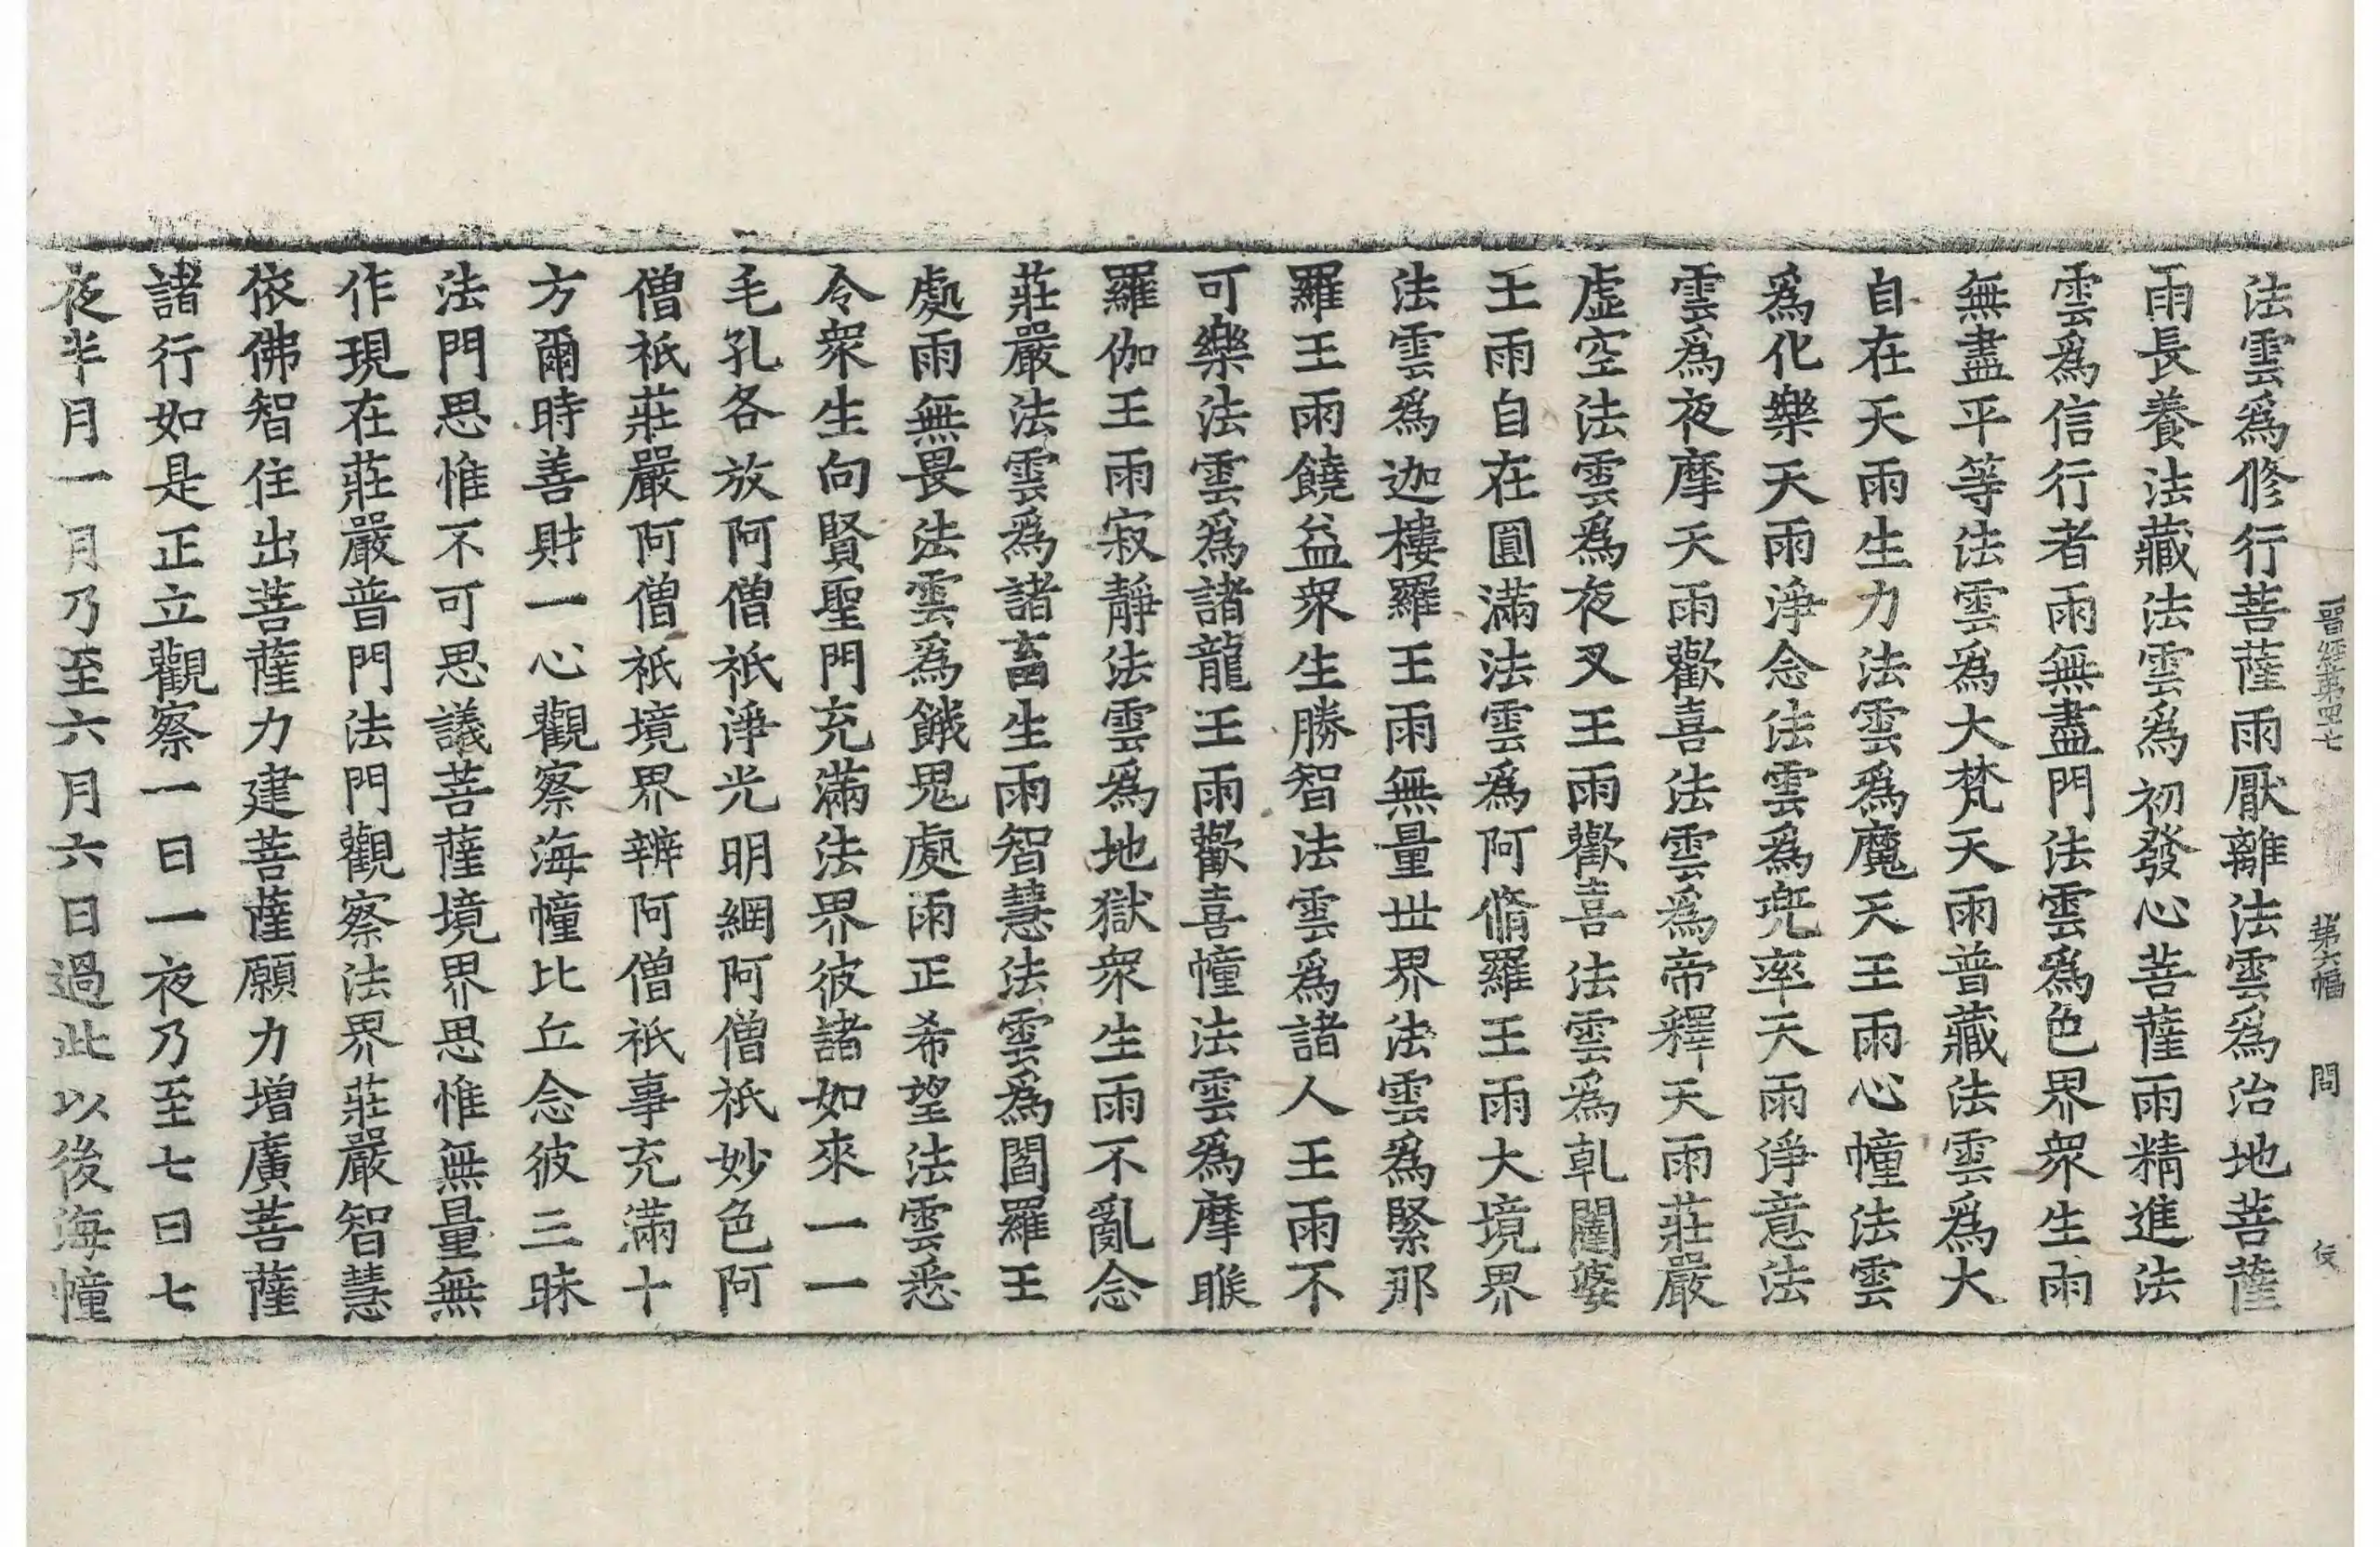 晉經第四七 第六幅 問
法雲爲修行菩薩雨厭離法雲爲治地菩薩
雨長養法藏法雲爲初發心菩薩雨精進法
雲爲信行者雨無盡門法雲爲色界衆生雨
無盡平等法雲爲大梵天雨普藏法雲爲大
自在天雨生力法雲爲魔天王雨心幢法雲
爲化樂天雨淨念法雲爲兜率天雨淨意法
雲爲夜摩天雨歡喜法雲爲帝釋天雨莊嚴
虛空法雲爲夜叉王雨歡喜法雲爲乹闥婆
王雨自在圓滿法雲爲阿脩羅王雨大境界
法雲爲迦樓羅王雨無量世界法雲爲緊那
羅王雨饒益衆生勝智法雲爲諸人王雨不
可樂法雲爲諸龍王雨歡喜幢法雲爲摩睺
羅伽王雨寂靜法雲爲地獄衆生雨不亂念
莊嚴法雲爲諸畜生雨智慧法雲爲閻羅王
處雨無畏法雲爲餓鬼處雨正希望法雲悉
令衆生向賢聖門充滿法界彼諸如來一一
毛孔各放阿僧祇淨光明網阿僧祇妙色阿
僧祇莊嚴阿僧祇境界辨阿僧祇事充滿十
方爾時善財一心觀察海幢比丘念彼三昧
法門思惟不可思議菩薩境界思惟無量無
作現在莊嚴普門法門觀察法界莊嚴智慧
依佛智住出菩薩力建菩薩願力增廣菩薩
諸行如是正立觀察一日一夜乃至七日七
夜半月一月乃至六月六日過此以後海幢